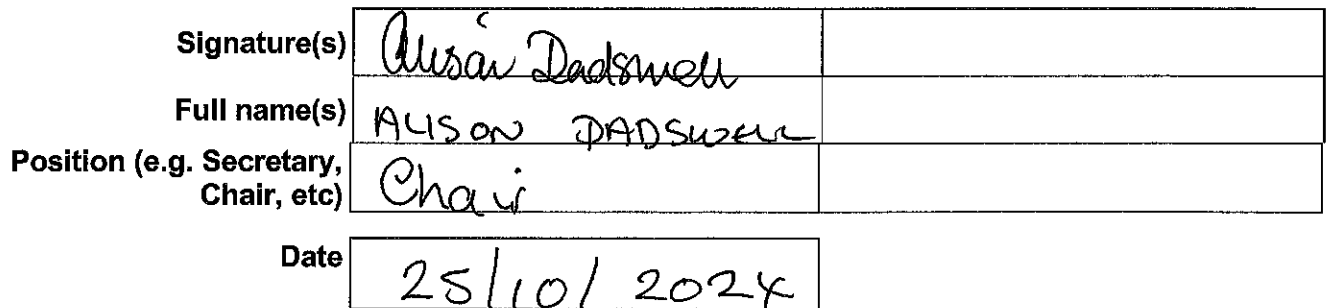 Signature(s) Alison Dadswell
Full name(s) ALISON DADSWELL
Position (e.g. Secretary,
Chair, etc) Chair
Date 25/10/2024